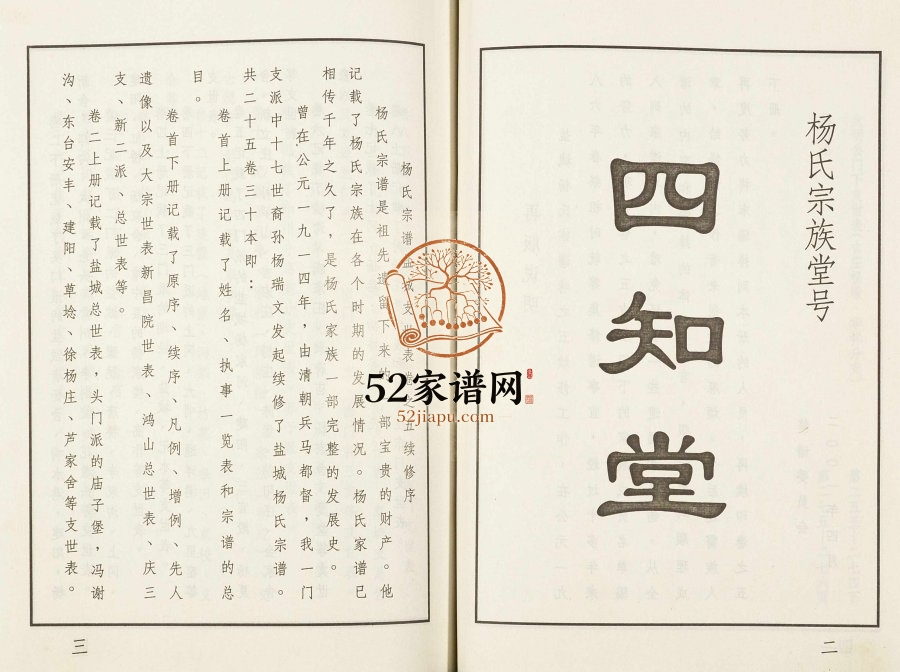 杨氏宗族堂号
四知堂
二
杨氏宗谱盐城支世表卷之五续修序
杨氏宗谱是祖先遗留下来的一部宝贵的财产。他
记载了杨氏宗族在各个时期的发展情况。杨氏家谱已
相传千年之久了，是杨氏家族一部完整的发展史。
曾在公元一九一四年，由清朝兵马都督，我一门
支派中十七世裔孙杨瑞文发起续修了盐城杨氏宗谱。
共二十五卷三十本即：
卷首上册记载了姓名、执事一览表和宗谱的总
目。
卷首下册记载了原序、续序、凡例、增例、先人
遗像以及大宗世表新昌院世表、鸿山总世表、庆三
支、新二派、总世表等。
卷二上册记载了盐城总世表，头门派的庙子堡，冯谢
沟、东台安丰、建阳、草埝、徐杨庄、芦家舍等支世表。
三
52家谱网
52jiapu.com